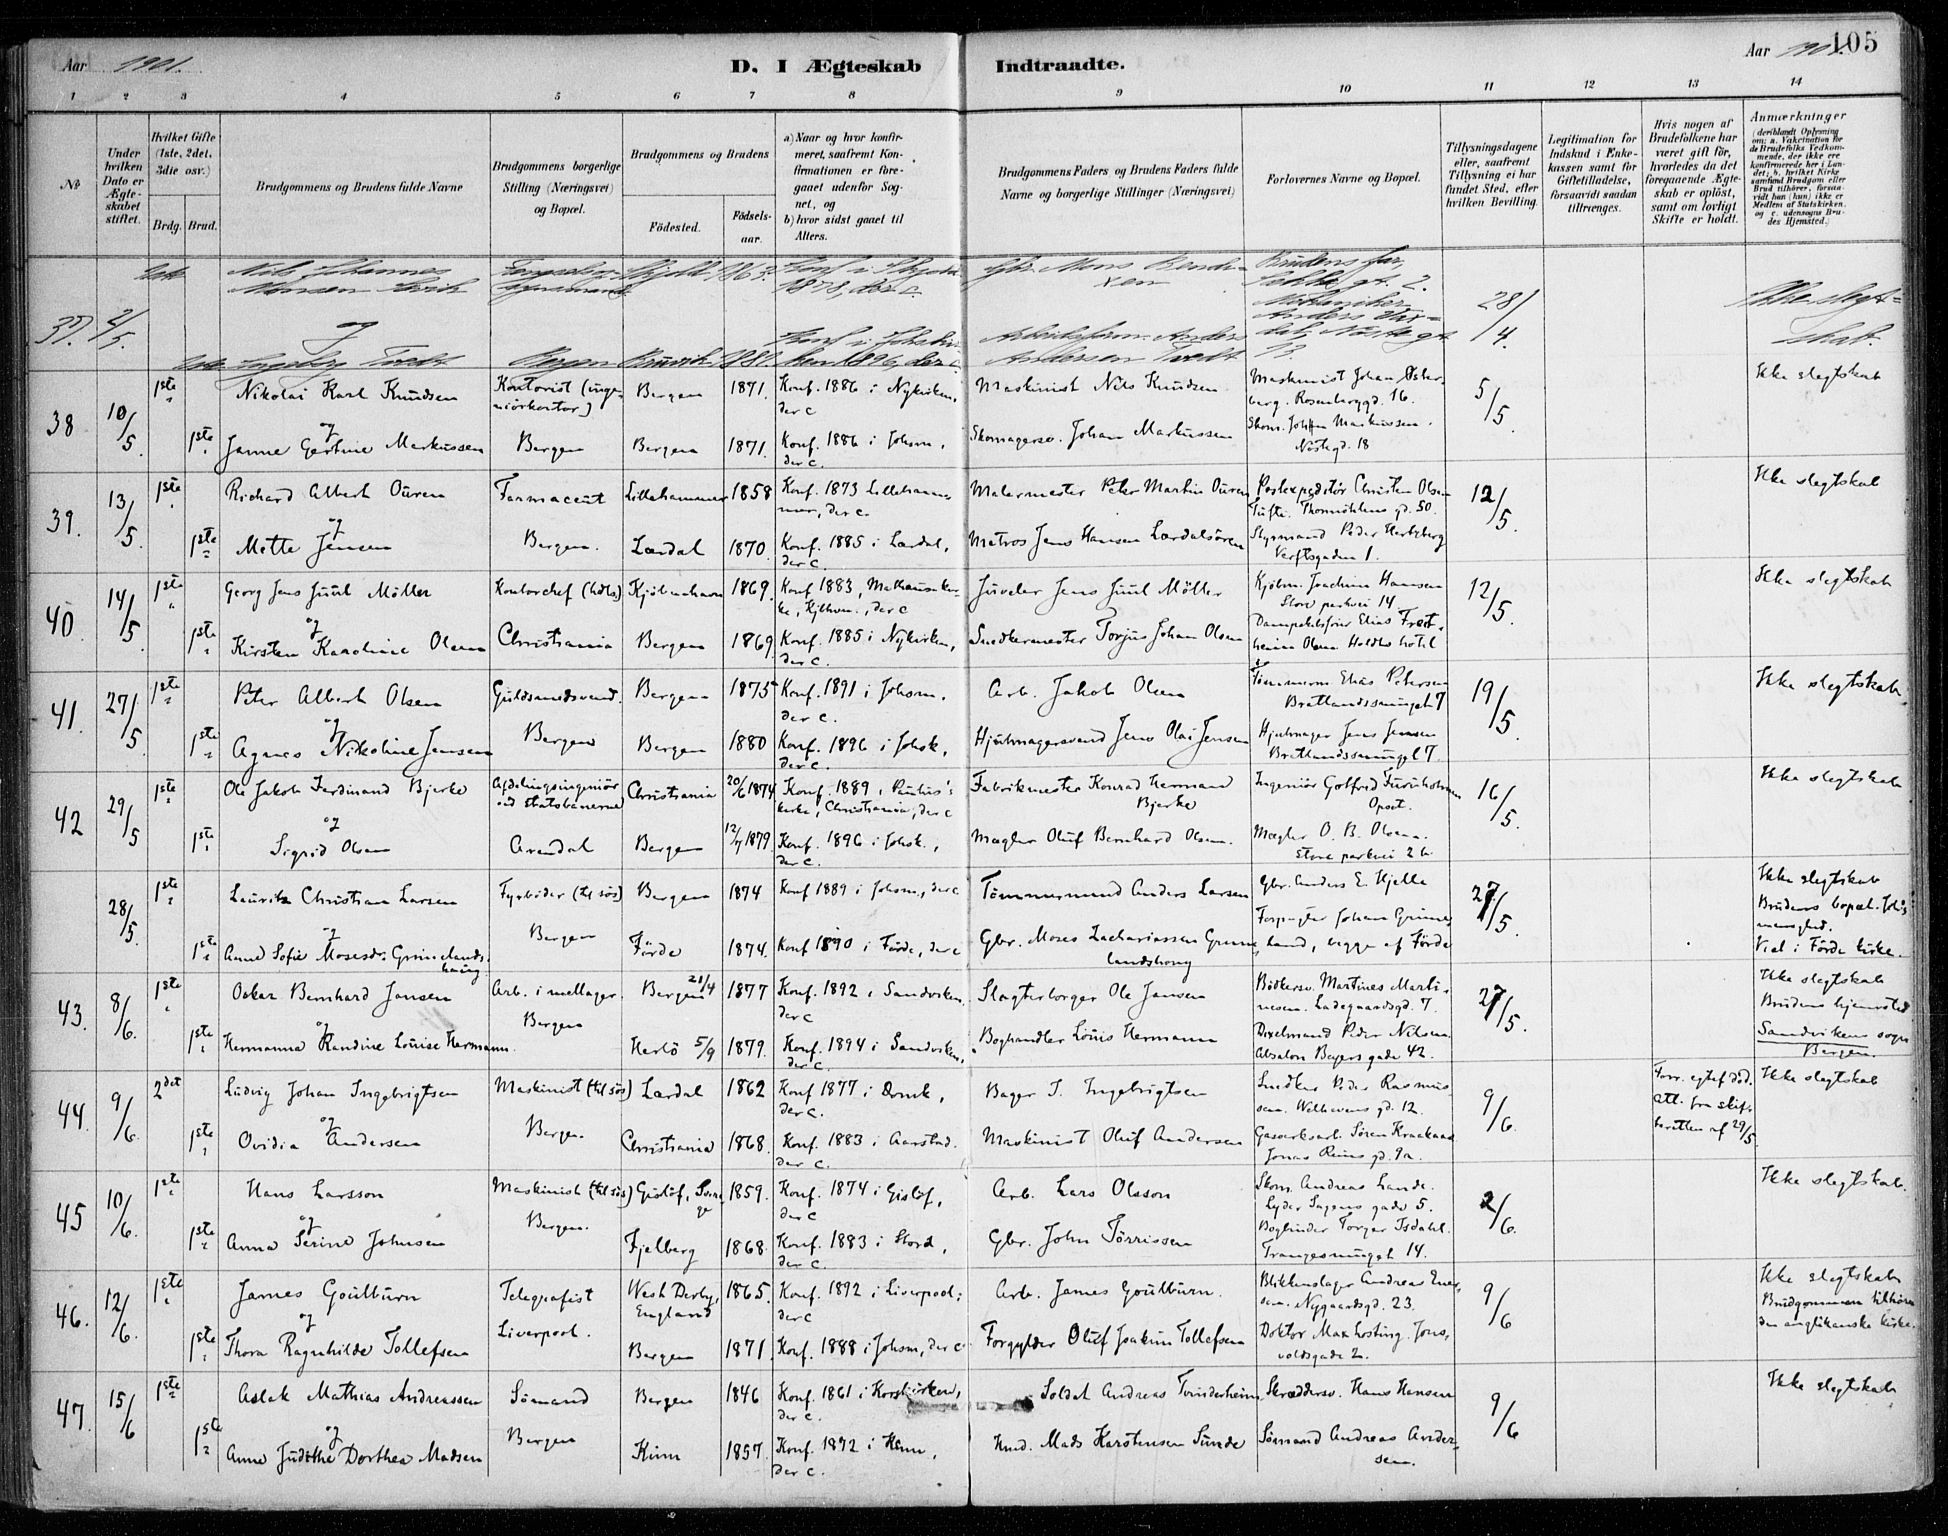 Aar 1901.
D. I Ægteskab Indtraadte.
Aar 1901.
105
1 2 3 4 5 6 7 8 9 10 11 12 13 14
No
Under hvilken Dato er Ægteskabet stiftet.
Hvilket Gifte (1ste, 2det, 3die osv.)
Brdg. Brud.
Brudgommens og Brudens fulde Navne
Brudgommens borgerlige Stilling (Næringsvei) og Bopæl.
Brudgommens og Brudens
Födested.
Födselsaar.
a) Naar og hvor konfirmeret, saafremt Konfirmationen er foregaaet udenfor Sognet, og
b) hvor sidst gaaet til Alters.
Brudgommens Faders og Brudens Faders fulde Navne og borgerlige Stillinger (Næringsvei)
Forlovernes Navne og Bopæl.
Tillysningsdagene eller, saafremt Tillysning ei har fundet Sted, efter hvilken Bevilling.
Legitimation for Indskud i Enkekassen samt for Giftetilladelse, forsaavidt saadan tiltrænges.
Hvis nogen af Brudefolkene har været gift för, hvorledes da det foregaaende Ægteskab er oplöst, samt om lovligt Skifte er holdt.
Anmærkninger
(deriblandt Oplysning om: a. Vakcination for de Brudefolks Vedkommende, der ikke ere konfirmerede her i Landet; b. hvilket Kirkesamfund Brudgom eller Brud tilhörer, forsaavidt han (hun) ikke er Medlem af Statskirken, og c. udensogns Brudes Hjemsted.)
37. 2/5. Nils Johannes Monsen 1863. Konf. i 1878, der c. Gbr. Mons Brudens far, 28/4. Ikke slegtskab.
og
Ingeborg Tvedt Bergen Bruvik 1880. Konf. i 1896, der c. Anders Andersen Tvedt
38 10/5. 1ste Nikolai Karl Knudsen Kontorist (ingeniörkontor) Bergen 1871. Konf. 1886 i Nykirken, der c Maskinist Nils Knudsen Maskinist Johan Österberg. Rosenberggd. 16. 5/5. Ikke slegtskab
og
1ste Janne Gertine Markussen Bergen Bergen 1871. Konf. 1886 i Johsm, der c. Skomagersv. Johan Markussen Skom. Johan Markussen. Nöstegd. 18
39. 13/5. 1ste Richard Albert Ouren Farmaceut Lillehammer 1858 Konf. 1873 Lillehammer, der c. Malermester Peter Martin Ouren Postexpeditör Christen Olsen Tufte. Thormöhlens gd. 50. 12/5. Ikke slegtskab
og
1ste Mette Jensen Bergen. Lærdal 1870. Konf. 1885 i Lærdal, der c. Matros Jens Hansen Lærdalsören Styrmand Peder Hertzberg Verftsgaden 1.
40. 14/5 1ste Georg Jens Juul Möller Kontorchef (hdls) Kjöbenhavn 1869. Konf. 1883, , Kjöbhvn., der c Juveler Jens Juul Möller Kjöbm. Joachim Hansen Store parkvei 14 12/5. Ikke slegtskab
og
1ste Kirsten Karoline Olsen Christiania Bergen 1869. Konf. 1885 i Nykirken, der c. Snedkermester Torjus Johan Olsen Elias Olsen Holdts hotel
41. 27/5. 1ste Peter Albert Olsen Guldsmedsvend. Bergen 1875 Konf. 1891 i Johsm. der c. Arb. Jakob Olsen Tömmerm. Elias Petersen Bratlandssmuget 7 19/5. Ikke slegtskab
og
1ste Agnes Nikoline Jensen Bergen Bergen 1880 Konf. 1896 i Johsk., der c. Hjulmagersvend Jens Olai Jensen Hjulmager Jens Jensen Bratlandssmuget 7.
42 29/5 1ste Ole Jakob Ferdinand Bjerke Afdelingsingeniör ved statsbanerne Christiania 20/6 1874 Konf. 1889 i Paulus's kirke, Christiania, der c Fabrikmester Konrad Herman Bjerke Ingeniör Gotfred Furuholmen Opset. 16/5. Ikke slegtskab
og
1ste Sigrid Olsen Arendal Bergen 12/7 1879. Konf. 1896 i Johsk., der c. Mægler Oluf Bernhard Olsen. Mægler O. B. Olsen. Store parkvei 2 b.
28/5. 1ste Lauritz Christian Larsen Fyrböder (til sös) Bergen 1874 Konf 1889 i Johsm., der c Tömmermand Anders Larsen Gbr. Anders E. Hjelle 27/5. Ikke slegtskab Brudens bopæl Viel i Förde kirke.
og
1ste Anne Sofie Mosesdr. Grimelandshaug Bergen Förde 1874. Konf 1890 i Förde, der c Gbr. Moses Zachariassen Grimelandshaug Forpagter Johan Grimeland, begge af Förde
43. 8/6. 1ste Oskar Bernhard Jansen Arb. i mellager. Bergen 21/4 1877 Konf. 1892 i Sandviken. der c Slagterborger Ole Jansen Bödkersv. Martines Martinesen. Ladegaardsgd. 7. 27/5. Ikke slegtskab Brudens hjemsted Sandvikens sogn Bergen.
og
1ste Hermanna Randine Louise Hermann. Bergen Herlö 5/9 1879. Konf. 1894 i Sandviken, der c. Boghandler Louis Hermann Dixelmand Peder Nilsen Absalon Beyers gade 42.
44. 9/6. 2det Ludvig Johan Ingebrigtsen Maskinist (til sös) Lærdal 1862 Konf 1877 i Domk., der c. Bager J. Ingebrigtsen Snedker Peder Rasmussen. Welhavens gd. 12. 9/6. Forr. egtef död. Att. fra skifteretten af 29/5. Ikke slegtskab
og
1ste Ovidia Andersen Bergen. Christiania 1868. Konf. 1883 i Aarstad. der c. Maskinist Oluf Andersen Gasverksarb. Sören Jonas Reins gd. 9a.
45 10/6. 1ste Hans Larsson Maskinist (til sös) Gislöf, Sverige 1859. Konf. 1874 i Gislöf, der c Arb. Lars Olsson Skom. Andreas Lande. Lyder Sagens gade 5. 2/6. Ikke slegtskab.
og
1ste Anna Serine Johnsen Bergen. Fjelberg 1868. Konf. 1883 i Stord, der c. Gbr. John Törrissen Bogbinder Torger Isdahl. Trangesmuget 14.
46. 12/6. 1ste James Goulburn Telegrafist West Derby, England 1865. Konf. 1892 i Liverpool; der c Arb. James Goulburn. Blikkenslager Andreas Enersen. Nygaardsgd. 23. 9/6 Ikke slegtskab Brudgommen tilhörer den anglikanske kirke.
og
1ste Thora Ragnhilde Tollefsen Liverpool. Bergen 1871. Konf. 1888 i Johsm, der c Forgylder Oluf Joakim Tollefsen Doktor Max Losting. Jonsvoldsgade 2.
47. 15/6 1ste Aslak Mathias Andreassen Sömand Bergen 1846 Konf. 1861 i Korskirken, der c. Soldat Andreas Tvinderheim Skræddersv. Hans Hansen 9/6 Ikke slegtskab
og
1ste Anne Judithe Dorthea Madsen Bergen Kinn 1857. Konf. 1872 i Kinn, der c. Mads Karstensen Sunde Sömand Andreas Andersen.